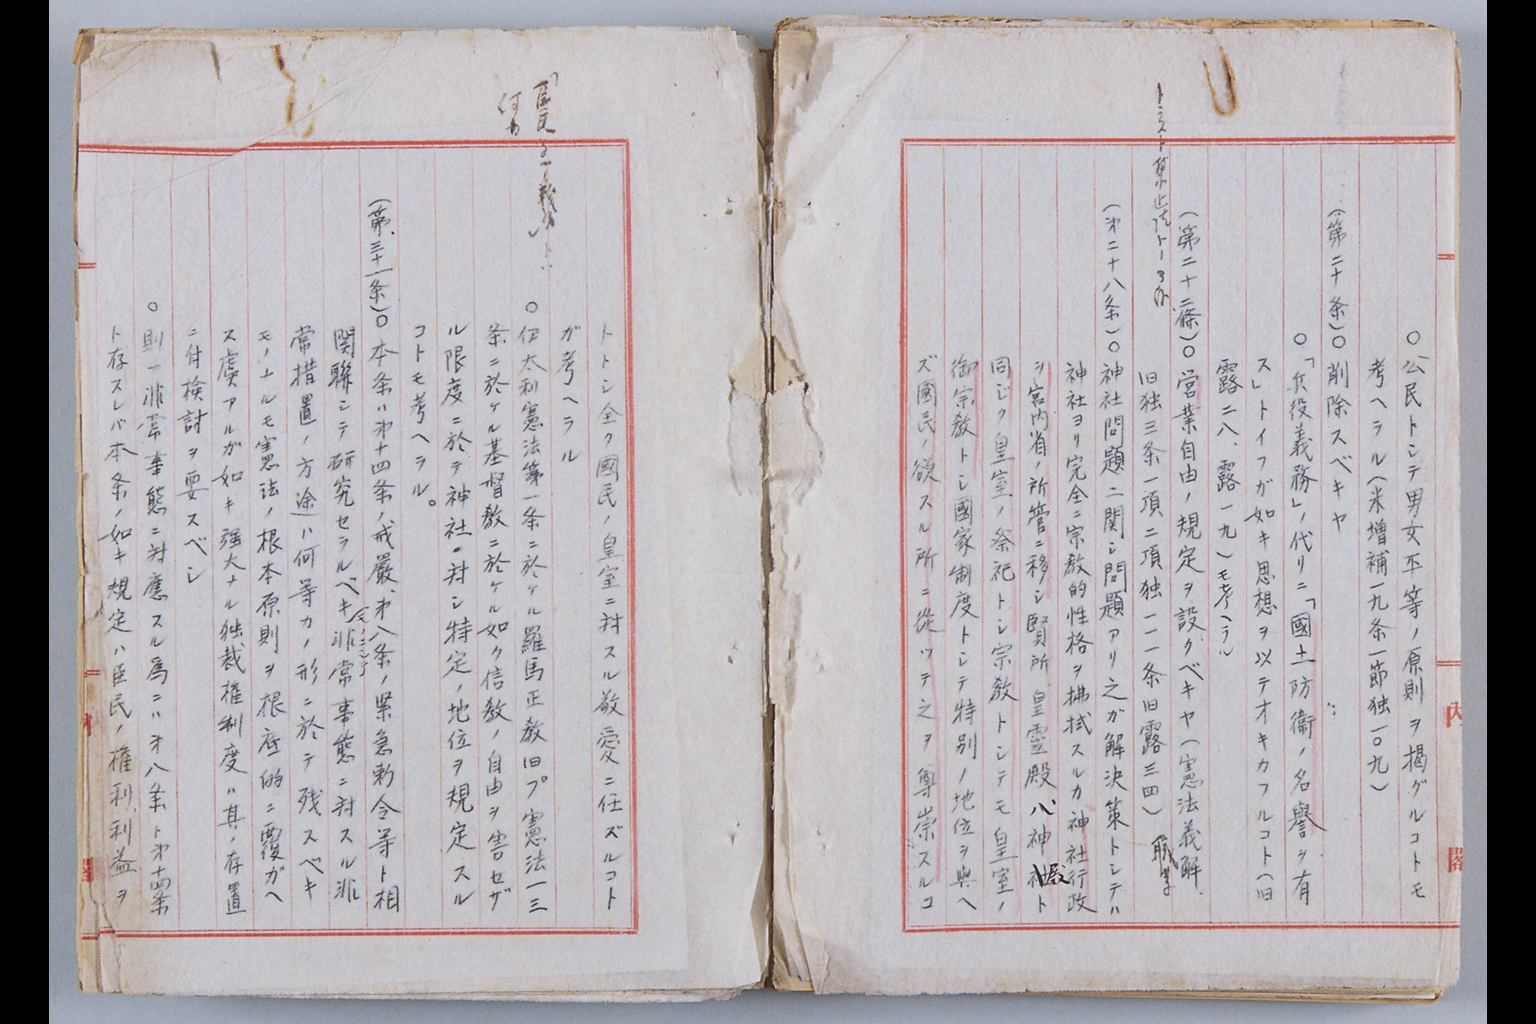 ○公民トシテ男女平等ノ原則ヲ掲グルコトモ
考ヘラル(米増補一九条一節独一〇九)
(第二十条)○削除スベキヤ
○「兵役義務」ノ代リニ「國土防衛ノ名譽ヲ有
ス」トイフガ如キ思想ヲ以テオキカフルコト(旧
露二八、露一九)モ考ヘラル
(第二十二條)○営業自由ノ規定ヲ設クベキヤ(憲法義解、
トラスト禁止法トノ
旧独三条一項二項独一一一条旧露三四)
(才二十八条)○神社問題ニ関シ問題アリ之ガ解決策トシテハ
神社ヨリ完全ニ宗教的性格ヲ拂拭スルカ神社行政
ヲ宮内省ノ所管ニ移シ賢所皇霊殿八神殿ト
同ジク皇室ノ祭祀トシ宗教トシテモ皇室ノ
御宗教トシ國家制度トシテ特別ノ地位ヲ與ヘ
ズ國民ノ欲スル所ニ従ツテ之ヲ尊崇スルコ
内閣
トトシ全ク國民ノ皇室ニ対スル敬愛ニ任ズルコト
ガ考ヘラル
○伊太利憲法第一条ニ於ケル羅馬正教旧プ憲法一三
条ニ於ケル基督教ニ於ケル如ク信教ノ自由ヲ害セザ
ル限度ニ於テ神社ニ対シ特定ノ地位ヲ規定スル
コトモ考ヘラル。
(第三十一条)○本条ハ才十四条ノ戒嚴、才八条ノ緊急勅令等ト相
関聯シテ研究セラルベキ非常事態ニ対スル非
常措置ノ方途ハ何等カノ形ニ於テ残スベキ
モノナルモ憲法ノ根本原則ヲ根底的ニ覆ガヘ
ス虞アルガ如キ強大ナル独裁権制度ハ其ノ存置
ニ付検討ヲ要スベシ
○則チ非常事態ニ対應スル為ニハ才八条ト才十四条
ト存スレバ本条ノ如キ規定ハ臣民ノ権利利益ヲ
内閣